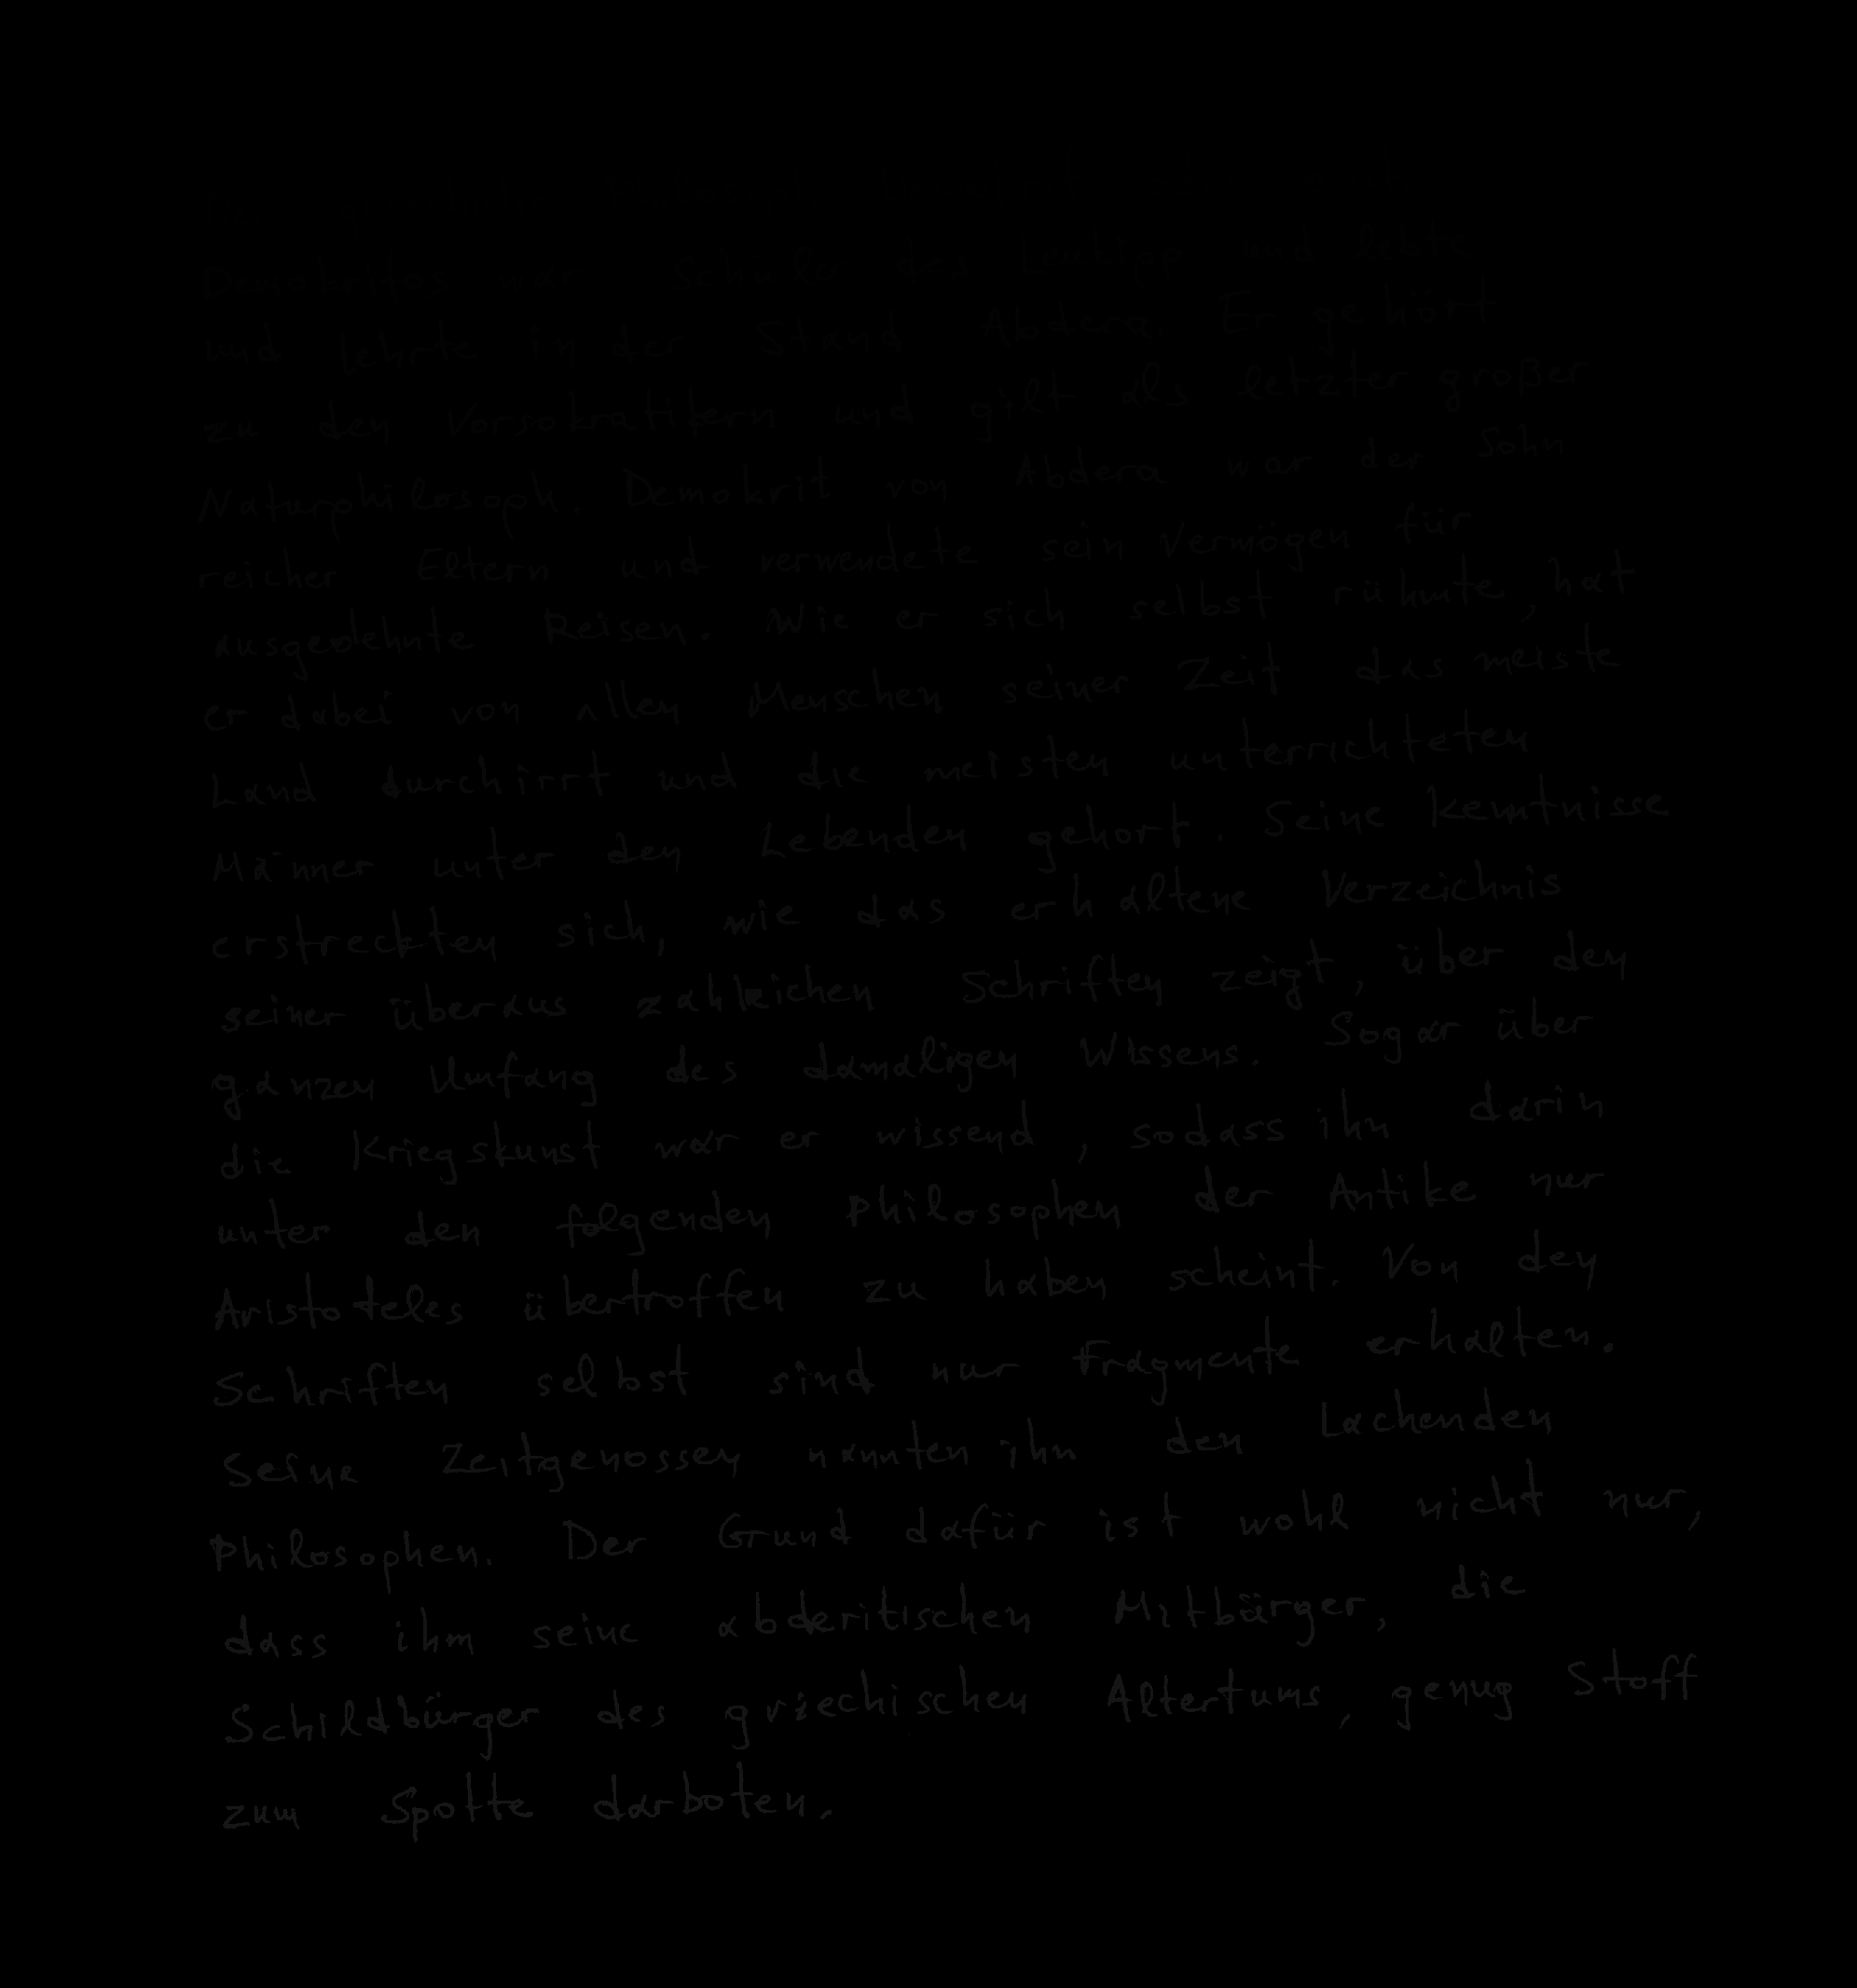 Demokritos war Schüler des Leukipp und lebte
und lehrte in der Stand Abdera. Er gehört
zu den Vorsokratikern und gilt als letzter großer
Naturphilosoph. Demokrit von Abdera war der Sohn
reicher Eltern und verwendete sein Vermögen für
ausgedehnte Reisen. Wie er sich selbst rühmte, hat
er dabei von allen Menschen seiner Zeit das meiste
Land durchirrt und die meisten unterrichteten
Männer unter den Lebenden gehört. Seine Kenntnisse
erstreckten sich, wie das erhaltene Verzeichnis
seiner überaus zahlreichen Schriften zeigt, über den
ganzen Umfang des damaligen Wissens. Sogar über
die Kriegskunst war er wissend, sodass ihn darin
unter den folgenden Philosophen der Antike nur
Aristoteles übertroffen zu haben scheint. Von den
Schriften selbst sind nur Fragmente erhalten.
Seine Zeitgenossen nannten ihn den Lachenden
Philosophen. Der Grund dafür ist wohl nicht nur,
dass ihm seine abderitischen Mitbürger, die
Schildbürger des griechischen Altertums, genug Stoff
zum Spotte darboten.